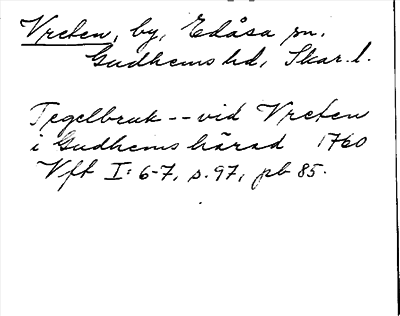 Vreten, by, Edåsa sn.
Gudhems hd, Skar. l.
Tegelbruk -- vid Vreten
i Gudhems härad 1760
Vft I: 6-7, s. 97, pb 85.